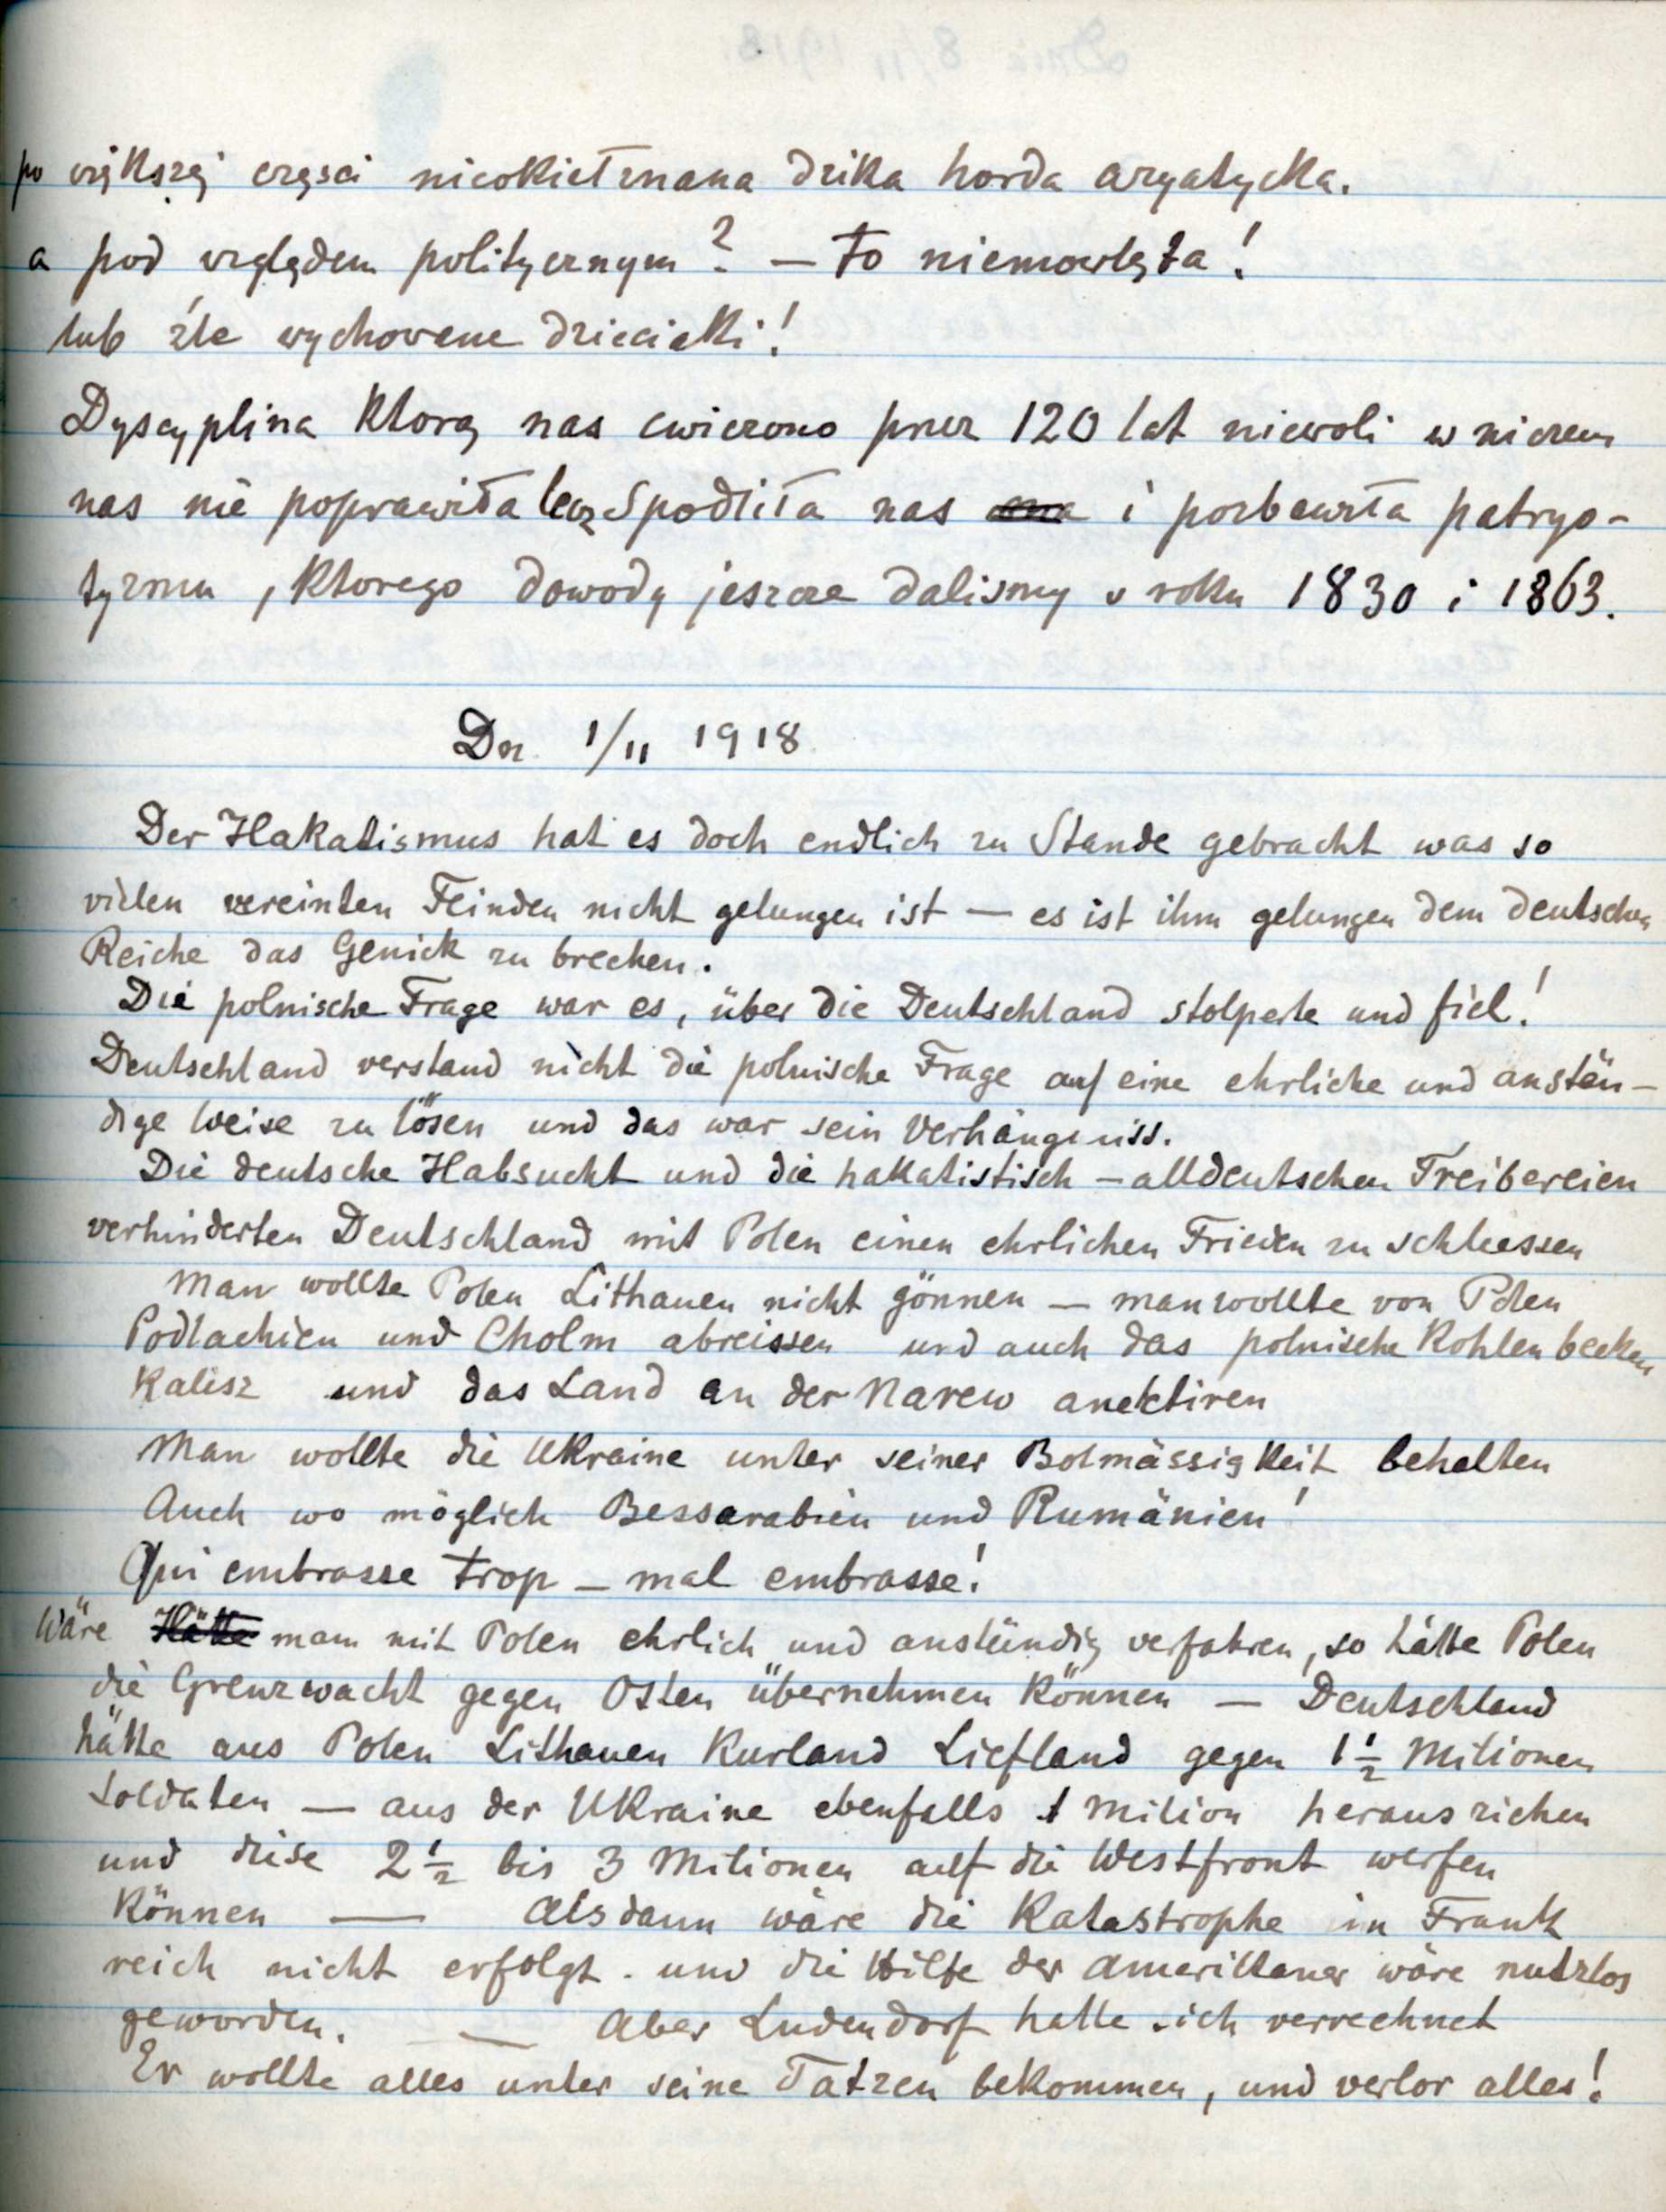 po większej częsci nieokiełznana dzika horda azyatycka.
a pod względem politycznym? — to niemowlęta!
lub źle wychowane dzieciaki!
Dyscyplina Ktorą nas cwiczono przez 120 lat niewoli w niczem
nas nie poprawiła lecz spodliła nas i pozbawiła patryo-
tyzmu, Ktorego dowody jeszcze dalismy w roku 1830 i 1863.
Dn. 1/11 1918
Der Hakatismus hat es doch endlich zu Stande gebracht was so
vielen vereinten Feinden nicht gelungen ist — es ist ihm gelungen dem deutschen
Reiche das Genick zu brechen.
Die polnische Frage war es, über die Deutschland stolperte und fiel!
Deutschland verstand nicht die polnische Frage auf eine ehrliche und anstän-
dige Weise zu lösen und das war sein Verhängniss.
Die deutsche Habsucht und die hakatistisch - alldeutschen Treibereien
verhinderten Deutschland mit Polen einen ehrlichen Frieden zu schliessen
Man wollte Polen Lithauen nicht gönnen — man wollte von Polen
Podlachien und Cholm abreissen und auch das polnische Kohlenbecken
Kalisz und das Land an der Narew anektiren
Man wollte die Ukraine unter seiner Botmässigkeit behalten
Auch wo möglich Bessarabien und Rumänien!
Qui embrasse trop — mal embrasse!
Wäre Hätte man mit Polen ehrlich und anständig verfahren, so hätte Polen
die Grenzwacht gegen Osten übernehmen Können — Deutschland
hätte aus Polen Lithauen Kurland Liefland gegen 1 1/2 Milionen
Soldaten — aus der Ukraine ebenfalls 1 Milion herausziehen
und diese 2 1/2 bis 3 Milionen auf die Westfront werfen
Können — Alsdann wäre die Katastrophe in Frank
reich nicht erfolgt. und die Hilfe der Amerikaner wäre nutzlos
geworden. — Aber Ludendorf hatte sich verrechnet
Er wollte alles unter seine Tatzen bekommen, und verlor alles!